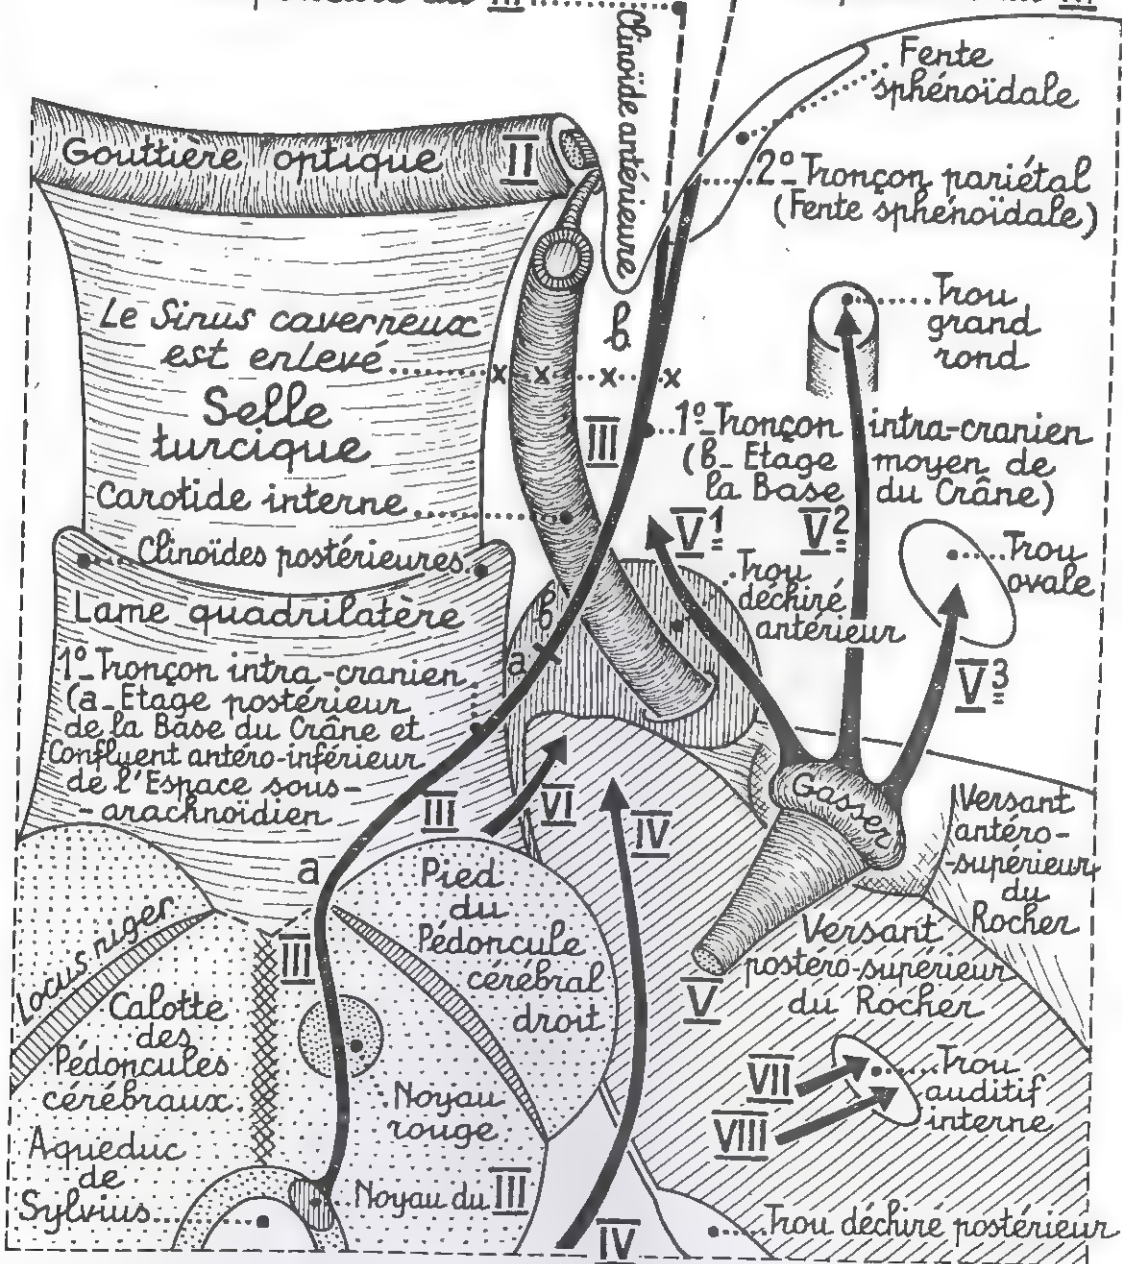 du III
Clinoïde antérieure
Fente
sphénoïdale
Gouttière optique II
2º_Tronçon pariétal
(Fente sphénoïdale)
Le Sinus caverneux
est enlevé
x x x x
b
Trou
grand
rond
Selle
turcique
III
1º_Tronçon intra-cranien
(b_ Etage moyen de
la Base du Crâne)
Carotide interne
V1
V2
Clinoïdes postérieures
Trou
déchiré
antérieur
Trou
ovale
Lame quadrilatère
b
a
V3
1º_Tronçon intra-cranien
(a_Etage postérieur
de la Base du Crâne et
Confluent antéro-inférieur
de l'Espace sous-
-arachnoïdien
III
VI
IV
Gasser
Versant
antéro-
-supérieur
du
Rocher
a
Pied
du
Pédoncule
cérébral
droit
Locus niger
III
Versant
postéro-supérieur
du Rocher
V
Calotte
des
Pédoncules
cérébraux
Noyau
rouge
VII
VIII
Trou
auditif
interne
Aqueduc
de
Sylvius
Noyau du III
IV
Trou déchiré postérieur